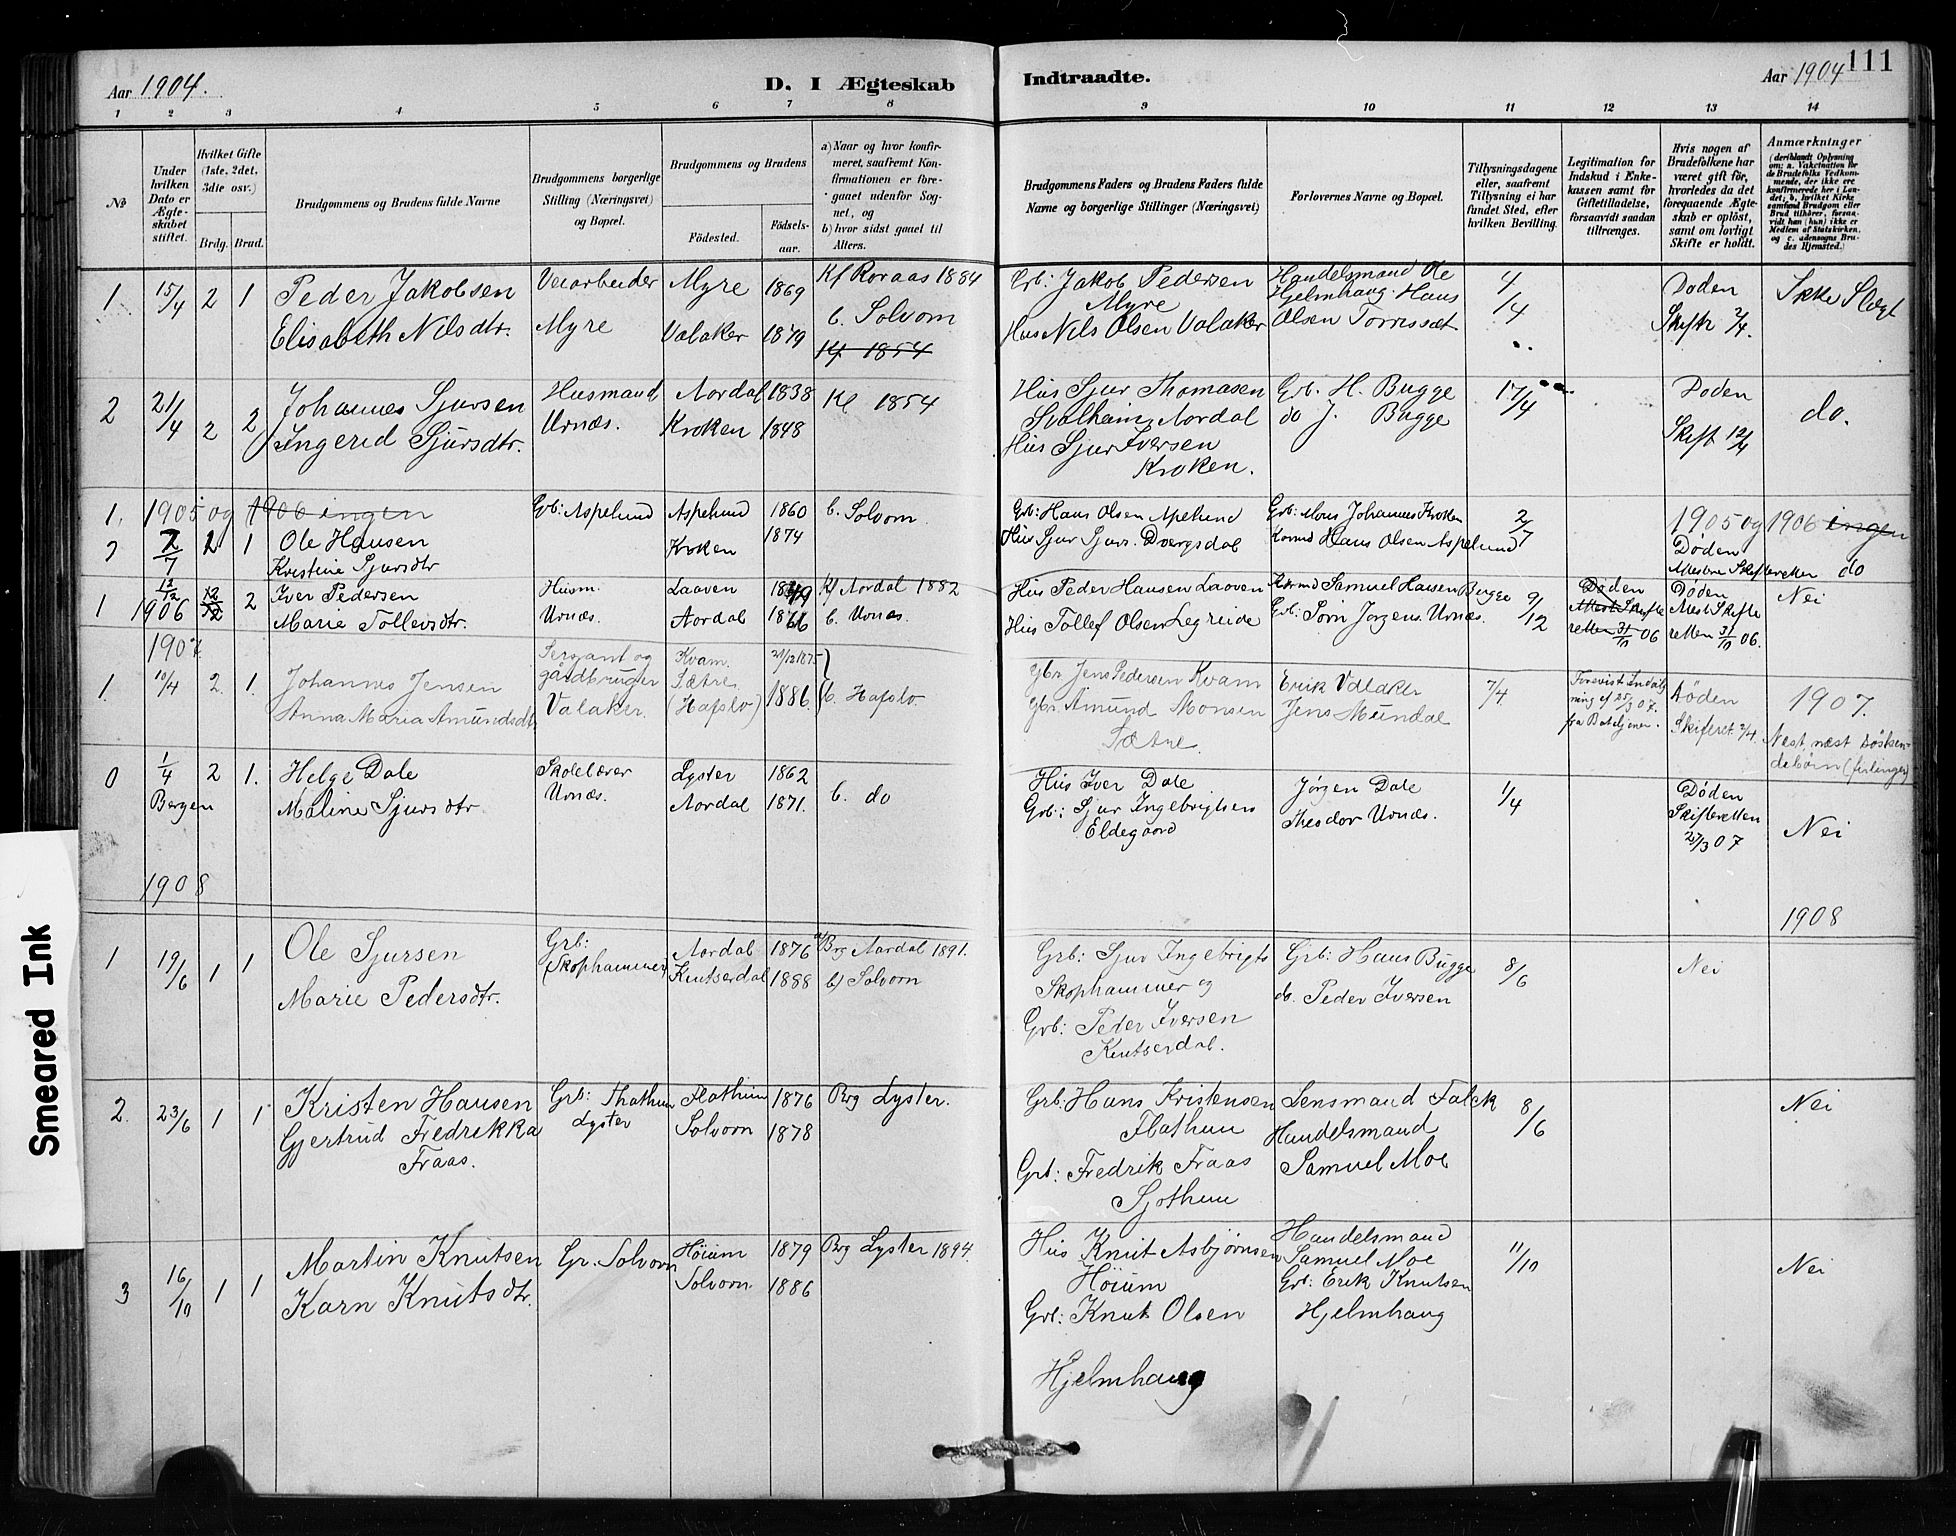 Aar 1904.
D. I Ægteskab
Indtraadte.
Aar 1904
111
1 2 3 4 5 6 7 8
9 10 11 12 13 14
No
Under hvilken Dato er Ægteskabet stiftet.
Hvilket Gifte (1ste, 2det, 3die osv.)
Brdg. Brud.
Brudgommens og Brudens fulde Navne
Brudgommens borgerlige Stilling (Næringsvei) og Bopæl.
Brudgommens og Brudens
Fødested.
Fødselsaar.
a) Naar og hvor konfirmeret, saafremt Konfirmationen er foregaaet udenfor Sognet, og
b) hvor sidst gaaet til Alters.
Brudgommens Faders og Brudens Faders fulde Navne og borgerlige Stillinger (Næringsvei)
Forlovernes Navne og Bopæl.
Tillysningsdagene eller, saafremt Tillysning ei har fundet Sted, efter hvilken Bevilling.
Legitimation for Indskud i Enkekassen samt for Giftetilladelse, forsaavidt saadan tiltrænges.
Hvis nogen af Brudefolkene har været gift før, hvorledes da det foregaaende Ægteskab er opløst, samt om lovligt Skifte er holdt.
Anmærkninger
1 15/4 2 1 Peder Jakobsen Veiarbeider Myre 1869 Kf Roraas 1884
Elisabeth Nilsdtr. Myre Valaker 1879 b. Solvorn
Kf 1854
Grb. Jakob Pedersen Handelsmand Ole 4/4 Døden Ikke Slegt
Myre Hjelmhaug. Hans
Hus Nils Olsen Valaker Olsen Torrissæt Skifte 2/4.
2 21/4 2 2 Johannes Sjursen Husmand Aordal 1838 Kf 1854
Ingerid Sjursdtr. Urnæs. Kroken 1848
Hus Sjur Thomasen Grb. H. Bugge 17/4 Døden do.
Svalheim, Aordal do J. Bugge
Hus Sjur Iversen Skift 12/4
Kroken.
1. 1905 og 1906 ingen Grb: Aspelund Aspelund 1860 b. Solvorn.
2 2/7 2 1 Ole Hansen Kroken 1874
Kristine Sjursdtr
Grb: Hans Olsen Apelund Grb: Mons Johannes Kroken 2/7 1905 og 1906 ingen
Hus Sjur Sjurs. Dvergsdal Hans Olsen Aspelund Døden
Skifteretten do
1 12/12 12/12 2 Iver Pedersen Husm. Laaven Kf Aordal 1882
1906 Marie Tollevsdtr. Urnæs. Aordal b. Urnæs
Hus Peder Hansen Laaven Samuel Hansen Berge 9/12 Døden Døden Nei
Hus Tollef Olsen Legreide Grb: Sørn Jørgens. Urnæs. Attest Skifteretten 31/10 06 Attest Skifteretten 31/10 06.
1907.
1. 10/4 2. 1. Johannes Jensen Sergant og gårdbruger Kvam. 21/12 1875
Anna Maria Amundsdtr. Valaker. Sætre (Hafslo) 1886. b. Hafslo.
Gbr. Jens Pedersen Kvam Erik Valaker 7/4 Døden 1907.
Gbr. Amund Monsen Jens Mundal Skifteret 2/4.
Sætre. fra Bataljonen.
0 1/4 2 1. Helge Dale Skolelærer Lyster 1862
Bergen Maline Sjursdtr Urnæs. Aordal 1871. b. do
Hus Iver Dale Jørgen Dale 1/4 Døden
Grb: Sjur Ingebrigtsen Theodor Urnæs. Skifteretten Nei
Eldegaard 27/3 07
1908
1908
1 19/6 1 1 Ole Sjursen Grb: Aordal 1876 a) Brg Aardal 1891.
Marie Pedersdtr. Skophammer Knutserdal 1888 b) Solvorn
Grb: Sjur Ingebrigts Grb: Hans Bugge 8/6 Nei
Skophammer og do. Peder Iversen
Grb: Peder Iversen
Knutserdal.
2. 23/6 1 1 Kristen Hansen Grb: Flathum 1876 Brg Lyster.
Gjertrud Fredrikka Lyster Solvorn 1878
Fraas.
Grb: Hans Kristensen Lensmand Falck 8/6 Nei
Flathum Handelsmand
Grb: Fredrik Fraas Samuel Moe
Sjøthun
3 16/10 1 1 Martin Knutsen Gr. Solvorn Høium 1879 Brg Lyster 1894
Karn Knutsdtr. Solvorn 1886
Hus Knut Asbjørnsen Handelsmand 11/10 Nei
Høium Samuel Moe
Grb: Knut Olsen Grb: Erik Knutsen
Hjelmhaug Hjelmhaug
Smeared Ink